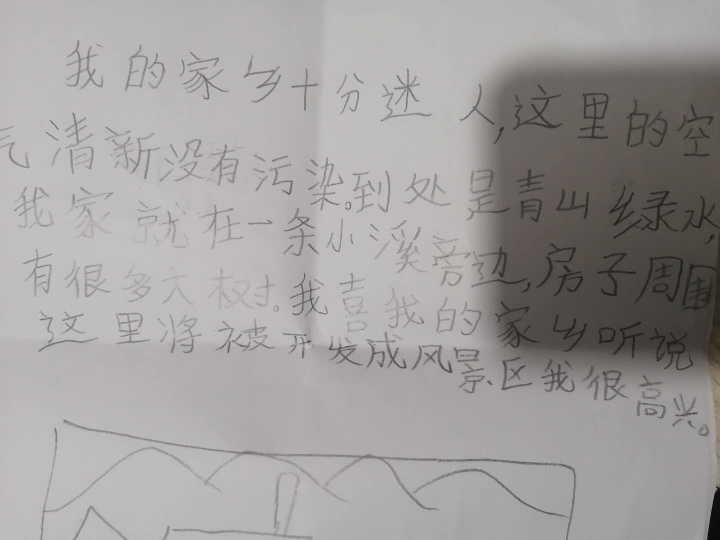 我的家乡十分迷人,这里的空
气清新没有污染。到处是青山绿水,
我家就在一条小溪旁边,房子周围
有很多大树。我喜我的家乡听说
这里将被开发成风景区我很高兴。